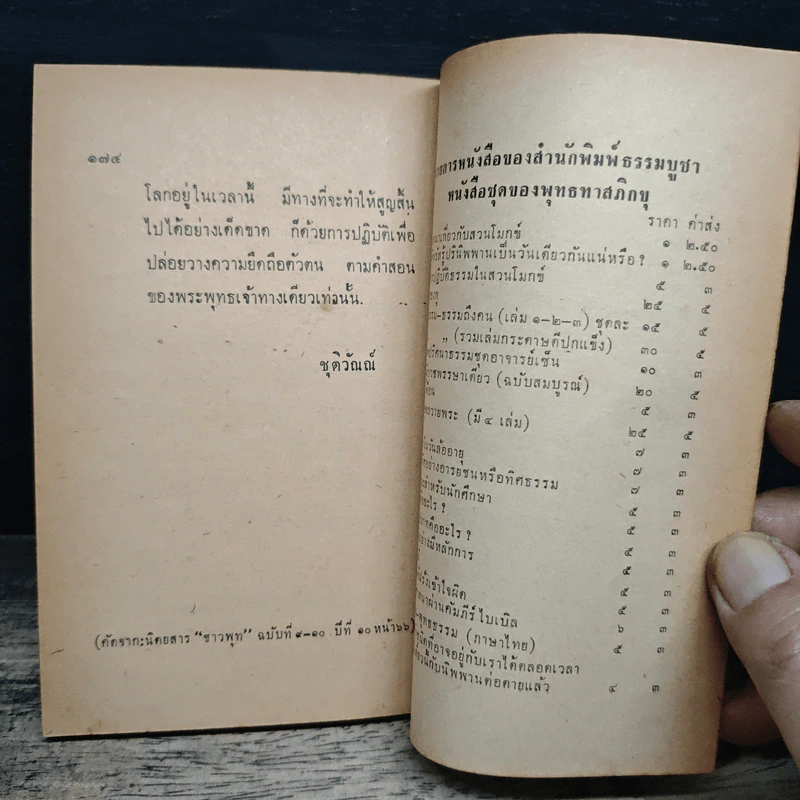 ๑๗๔
โลกอยู่ในเวลานี้ มีทางที่จะทำให้สูญสิ้น
ไปได้อย่างเด็ดขาด ก็ด้วยการปฏิบัติเพื่อ
ปล่อยวางความยึดถือตัวตน ตามคำสอน
ของพระพุทธเจ้าทางเดียวเท่านั้น.
ชุติวัณณ์
(คัดจาก:นิตยสาร "ชาวพุทธ" ฉบับที่ ๙-๑๐ ปีที่ ๑๐ หน้า๖๖)
การหนังสือของสำนักพิมพ์ธรรมบูชา
หนังสือชุดของพุทธทาสภิกขุ
ราคา ค่าส่ง
เกี่ยวกับสวนโมกข์ ๑ ๒.๕๐
ปรินิพพานเป็นวันเดียวกันแน่หรือ? ๑ ๒.๕๐
ปฏิบัติธรรมในสวนโมกข์ ๕ ๓
๒๕ ๕
-ธรรมถึงคน (เล่ม ๑-๒-๓) ชุดละ ๑๕ ๕
" (รวมเล่มกระดาษดีปกแข็ง) ๓๐ ๕
ปริศนาธรรมชุดอาจารย์เซ็น ๑๐ ๓
พรรษาเดียว (ฉบับสมบูรณ์) ๒๐ ๕
๕ ๓
ถวายพระ (มี ๔ เล่ม) ๒๕ ๕
วันล้ออายุ ๗ ๓
อย่างอารยชนหรือทิศธรรม ๗ ๓
สำหรับนักศึกษา ๗ ๓
อะไร ? ๕ ๓
คืออะไร ? ๕ ๓
อย่างมีหลักการ ๕ ๓
๕ ๓
ฝรั่งเข้าใจผิด ๕ ๓
ผ่านคัมภีร์ไบเบิล ๖ ๓
พุทธธรรม (ภาษาไทย) ๕ ๓
ที่อาจอยู่กับเราได้ตลอดเวลา
กับนิพพานต่อตายแล้ว ๔ ๓